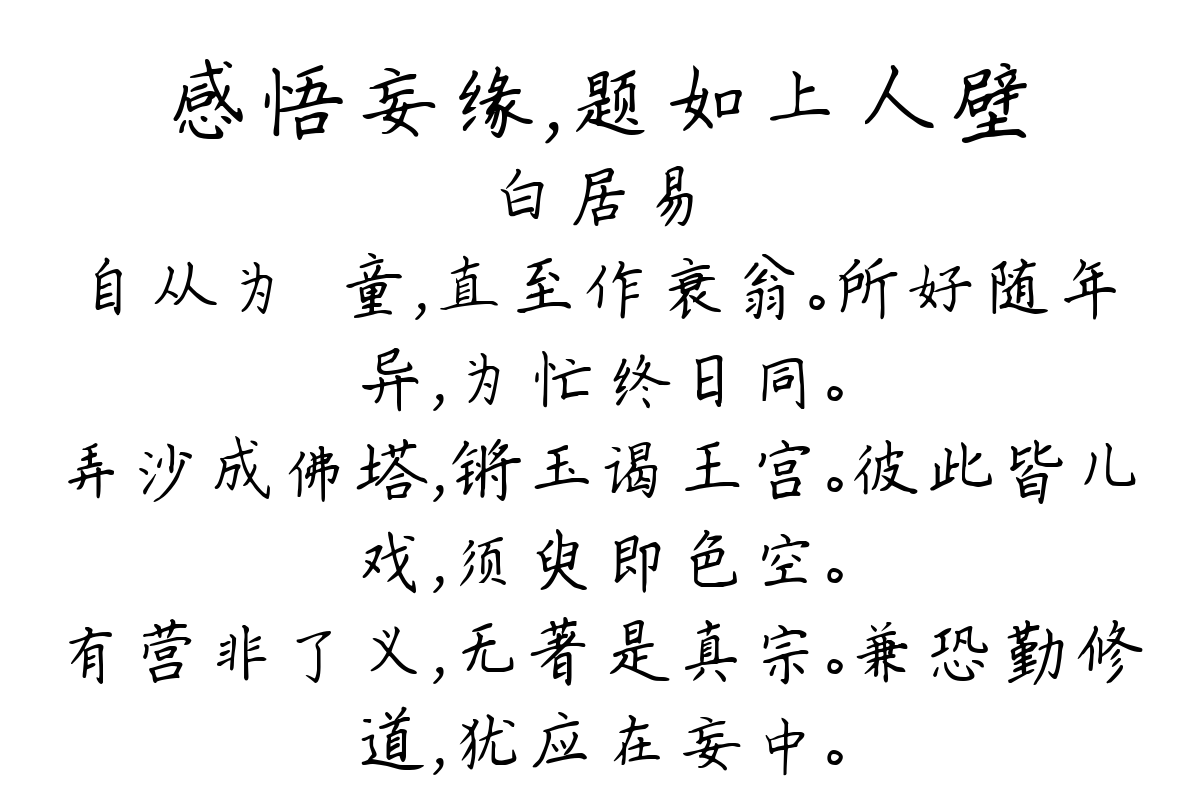 感悟妄缘,题如上人壁
白居易
自从为 童,直至作衰翁。所好随年
异,为忙终日同。
弄沙成佛塔,锵玉谒王宫。彼此皆儿
戏,须臾即色空。
有营非了义,无著是真宗。兼恐勤修
道,犹应在妄中。